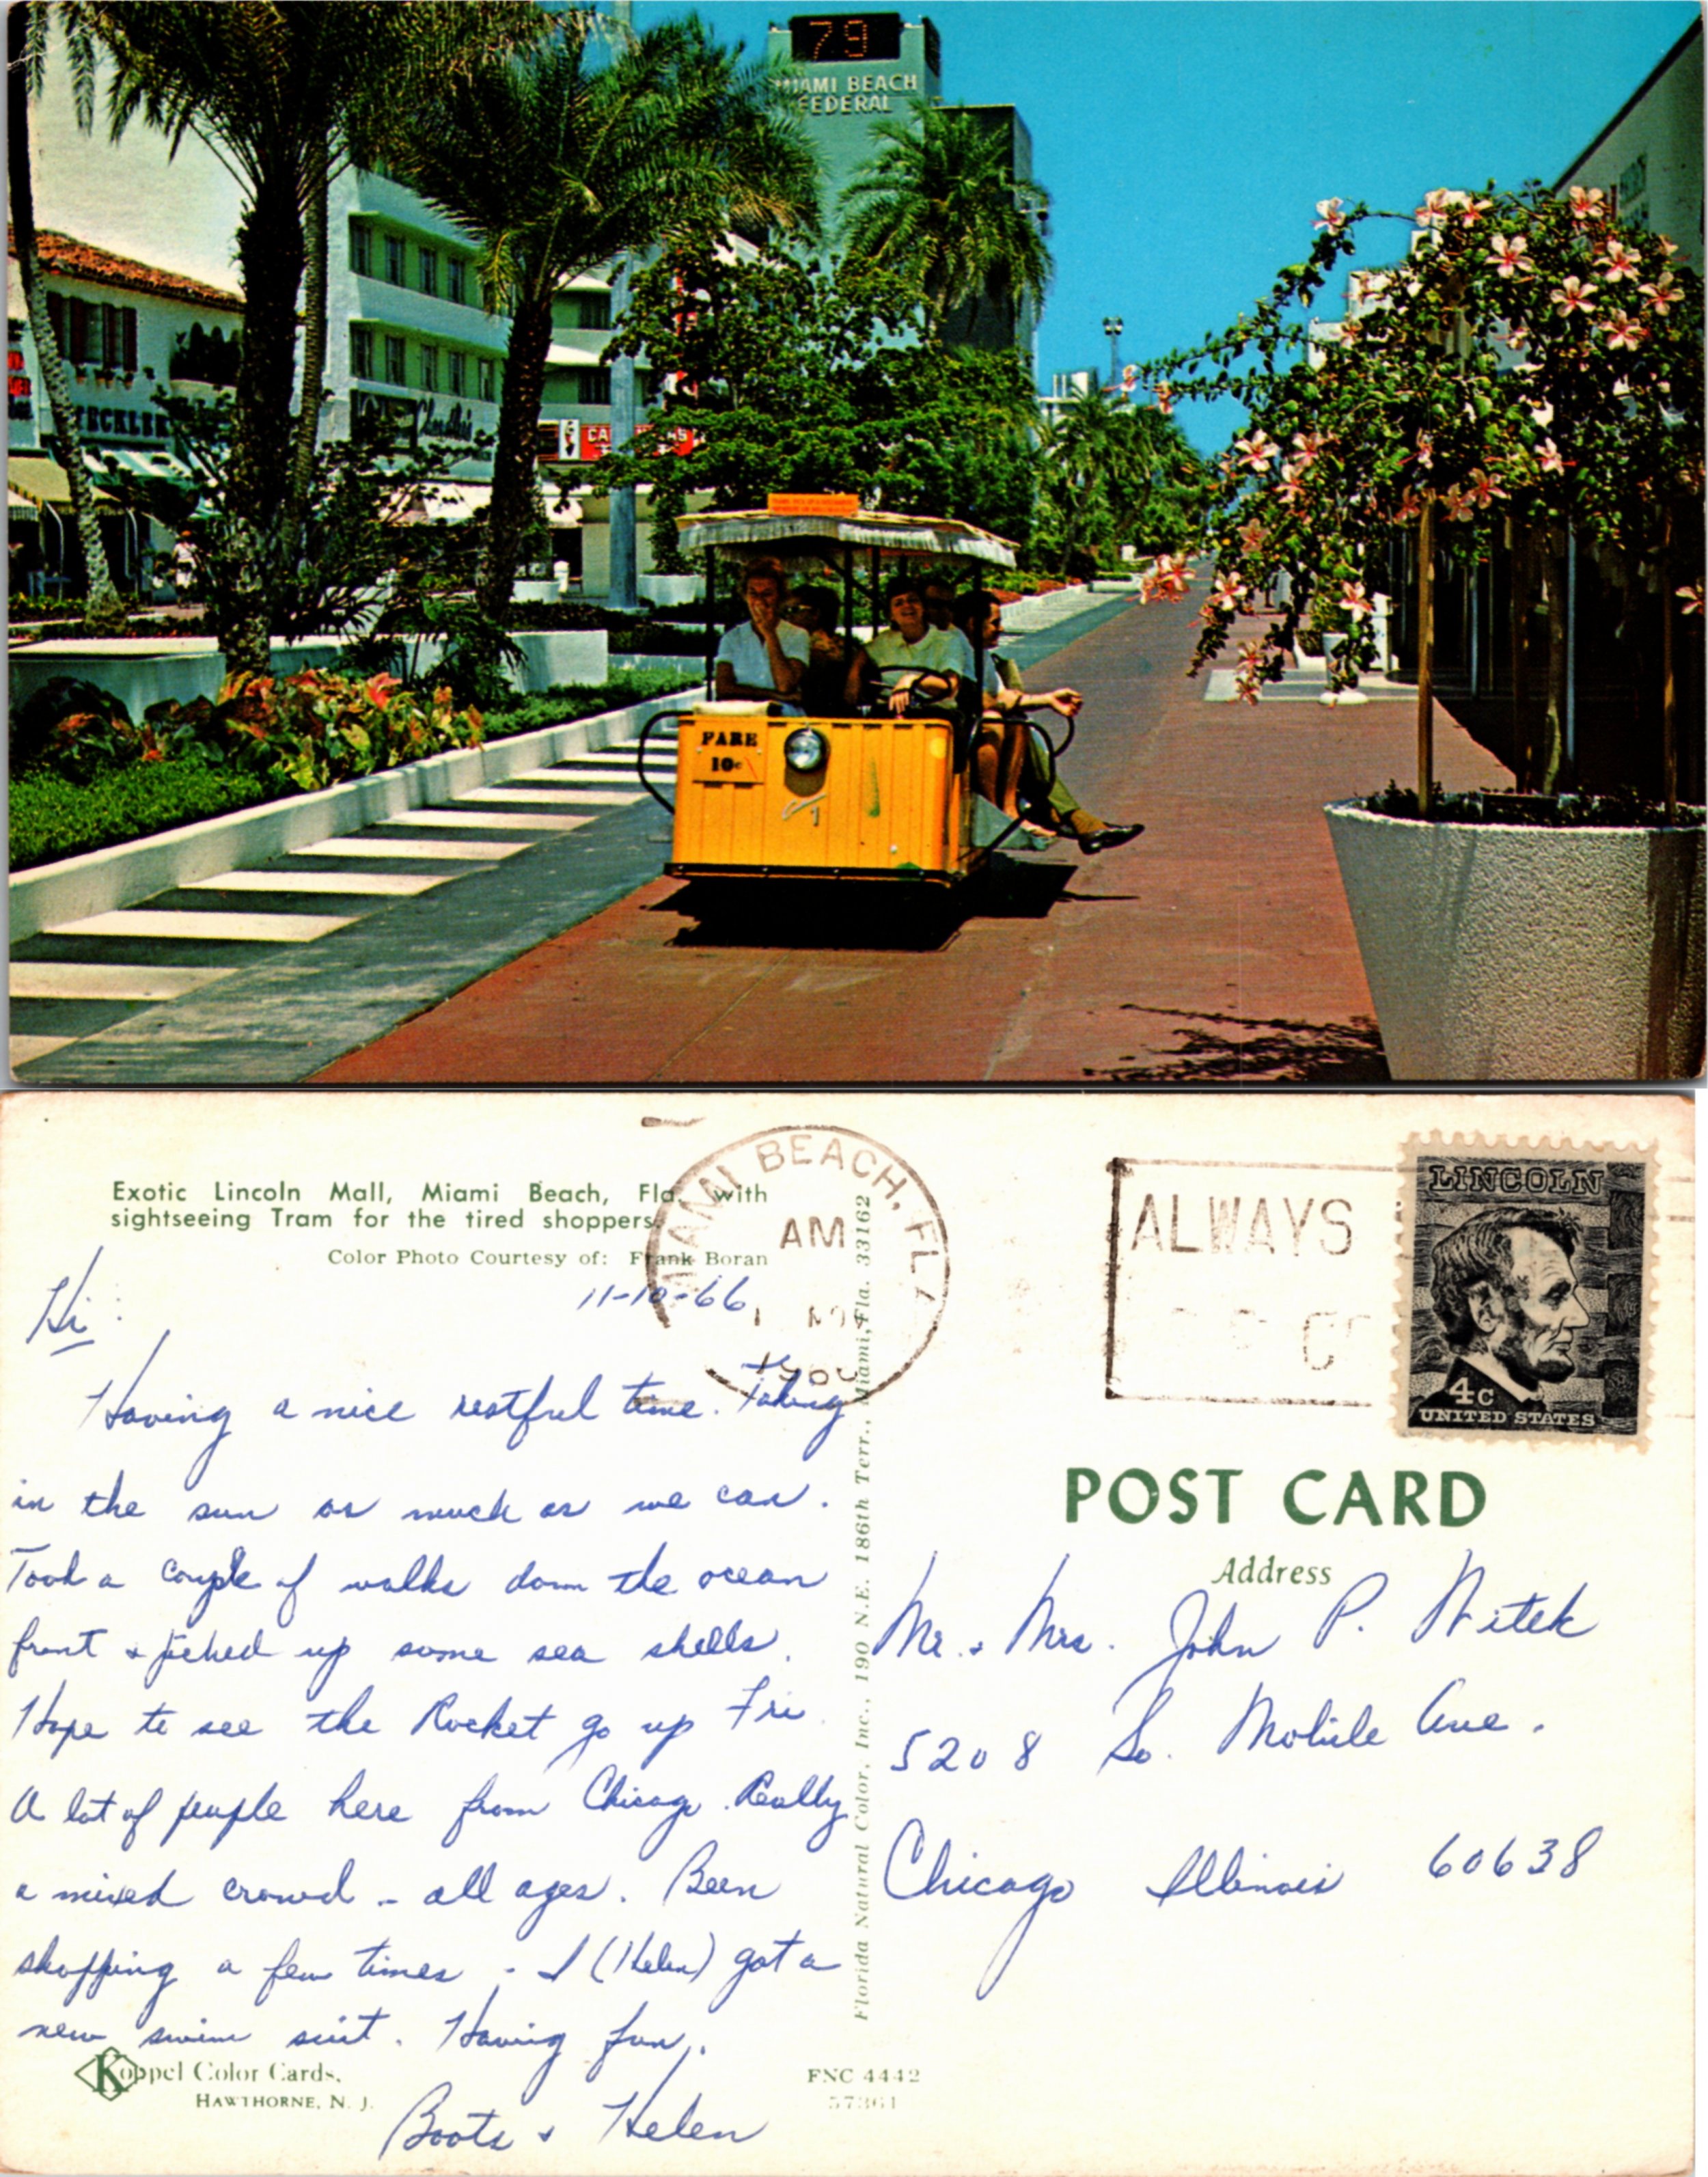 79
MIAMI BEACH
FEDERAL
FARE
10c
Exotic Lincoln Mall, Miami Beach, Fla. with
sightseeing Tram for the tired shoppers.
Color Photo Courtesy of: Frank Boran
11-10-66
Hi:
Having a nice restful time. Taking
in the sun as much as we can.
Took a couple of walks down the ocean
front & picked up some sea shells.
Hope to see the Rocket go up Fri.
A lot of people here from Chicago. Really
a mixed crowd - all ages. Been
shopping a few times - I (Helen) got a
new swim suit. Having fun.
Boots & Helen
Koppel Color Cards.
HAWTHORNE, N. J.
FNC 4442
57361
Florida Natural Color, Inc., 190 N.E. 186th Terr., Miami, Fla. 33162
MIAMI BEACH, FLA
AM
ALWAYS
LINCOLN
4c
UNITED STATES
POST CARD
Address
Mr. & Mrs. John P. Witek
5208 So. Mobile Ave.
Chicago Illinois 60638